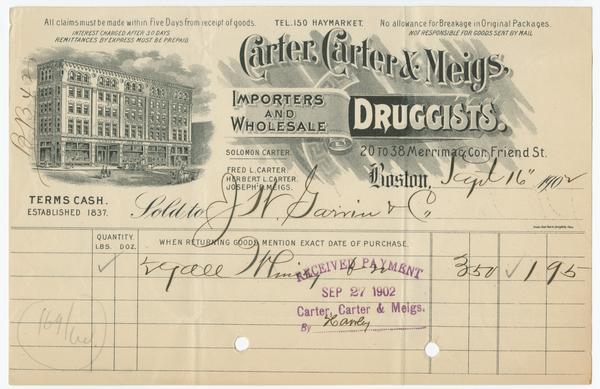 All claims must be made within Five Days from receipt of goods.
TEL. 150 HAYMARKET.
No allowance for Breakage in Original Packages.
INTEREST CHARGED AFTER 30 DAYS
REMITTANCES BY EXPRESS MUST BE PREPAID
NOT RESPONSIBLE FOR GOODS SENT BY MAIL
Carter, Carter & Meigs.
IMPORTERS
AND
WHOLESALE
DRUGGISTS.
SOLOMON CARTER.
20 TO 38 Merrimac Cor. Friend St.
FRED L. CARTER.
HERBERT L. CARTER.
JOSEPH R. MEIGS.
Boston, Sept 16" 1902
TERMS CASH.
ESTABLISHED 1837.
Sold to J. W. & Co
QUANTITY.
LBS. DOZ.
WHEN RETURNING GOODS MENTION EXACT DATE OF PURCHASE.
✓ gall 350 ✓ 1 95
RECEIVED PAYMENT
SEP 27 1902
Carter, Carter & Meigs.
By